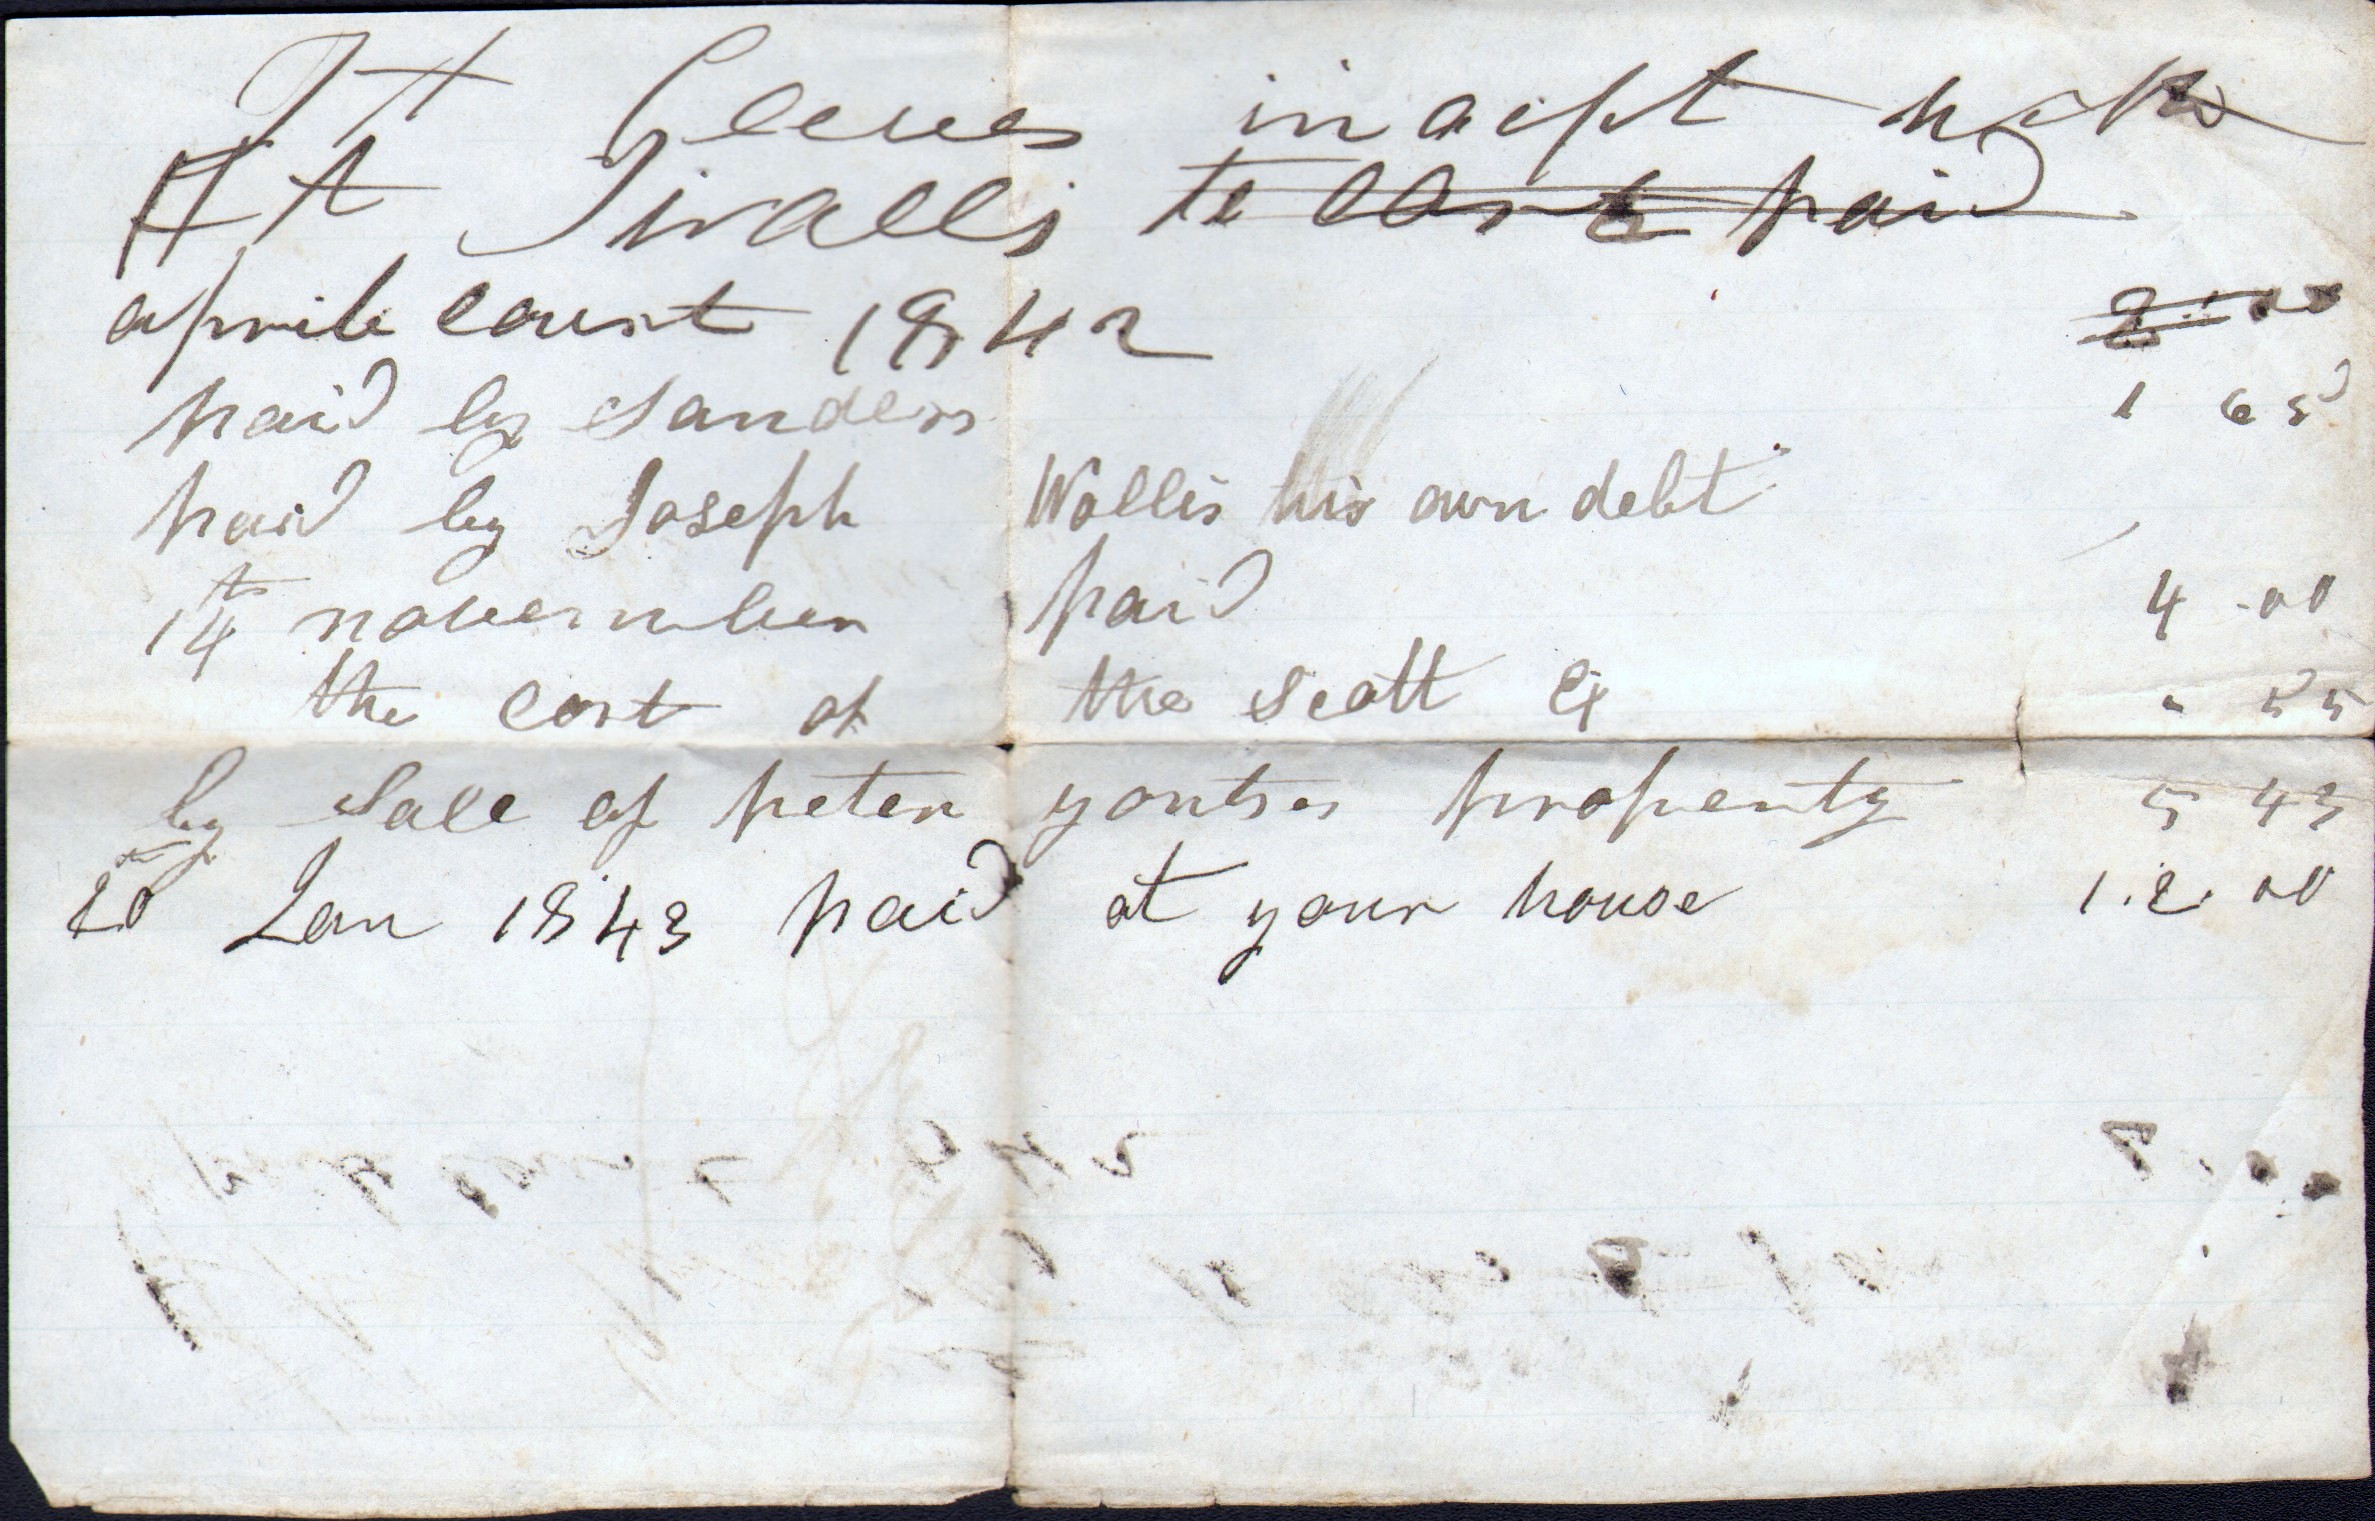 in acpt with
te cost paid
aprile court 1842 2.00
paid by Sanders 1 65
paid by Joseph Wallis his own debt
14th november paid 4.00
the cost of the Scott Ex " 55
by Sale of peter yontses property 5 43
20 Jan 1843 paid at your house 12.00